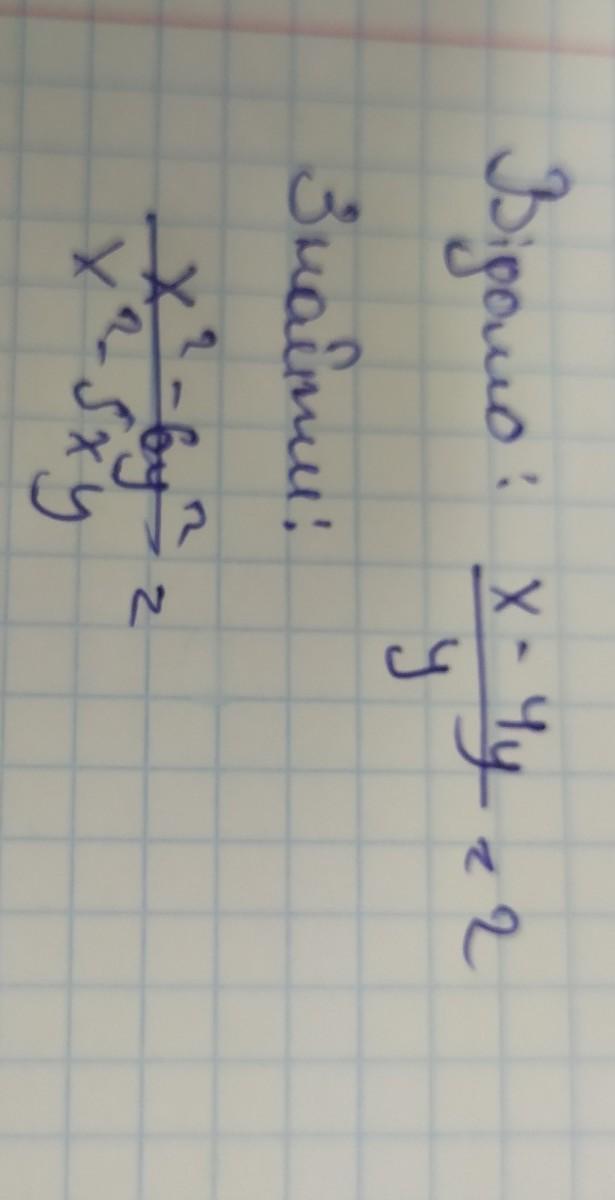 Відомо: x - 4y
y
= 2
Знайти:
x² - 6y²
x² - 5xy
=